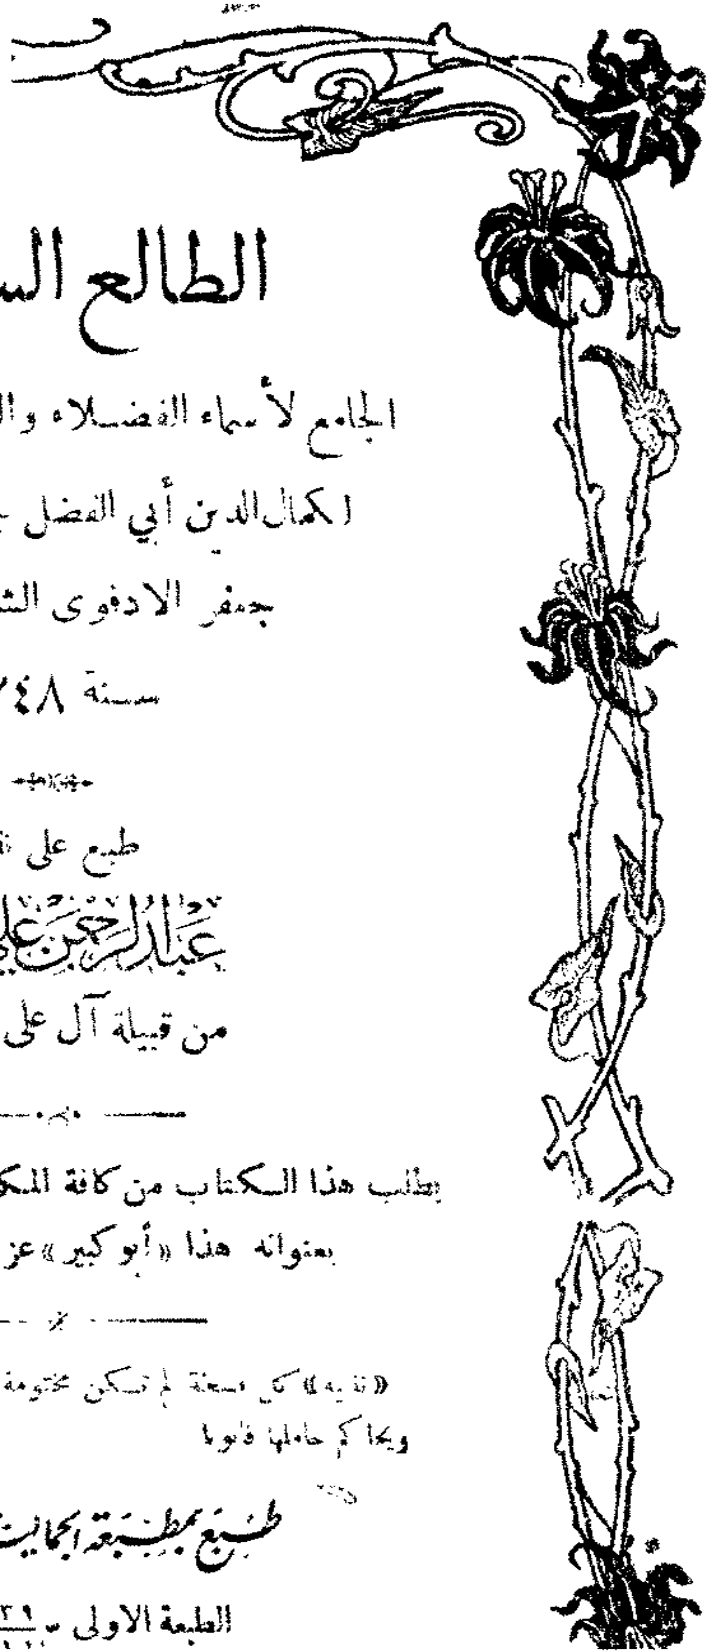 الطالع
الجامع لأسماء الفضلاء
كمال الدين أبي الفضل
جعفر الادفوى
سنة ٤٨
طبع على
عبد الرحمن علي
من قبيلة آل على
يطلب هذا الكتاب من كافة
بعنوانه هذا «أبو كبير» عز
«تنبيه» كل نسخة لم تكن مختومة
ويحاكم حاملها قانونا
طبع بمطبعة الجمالية
الطبعة الاولى